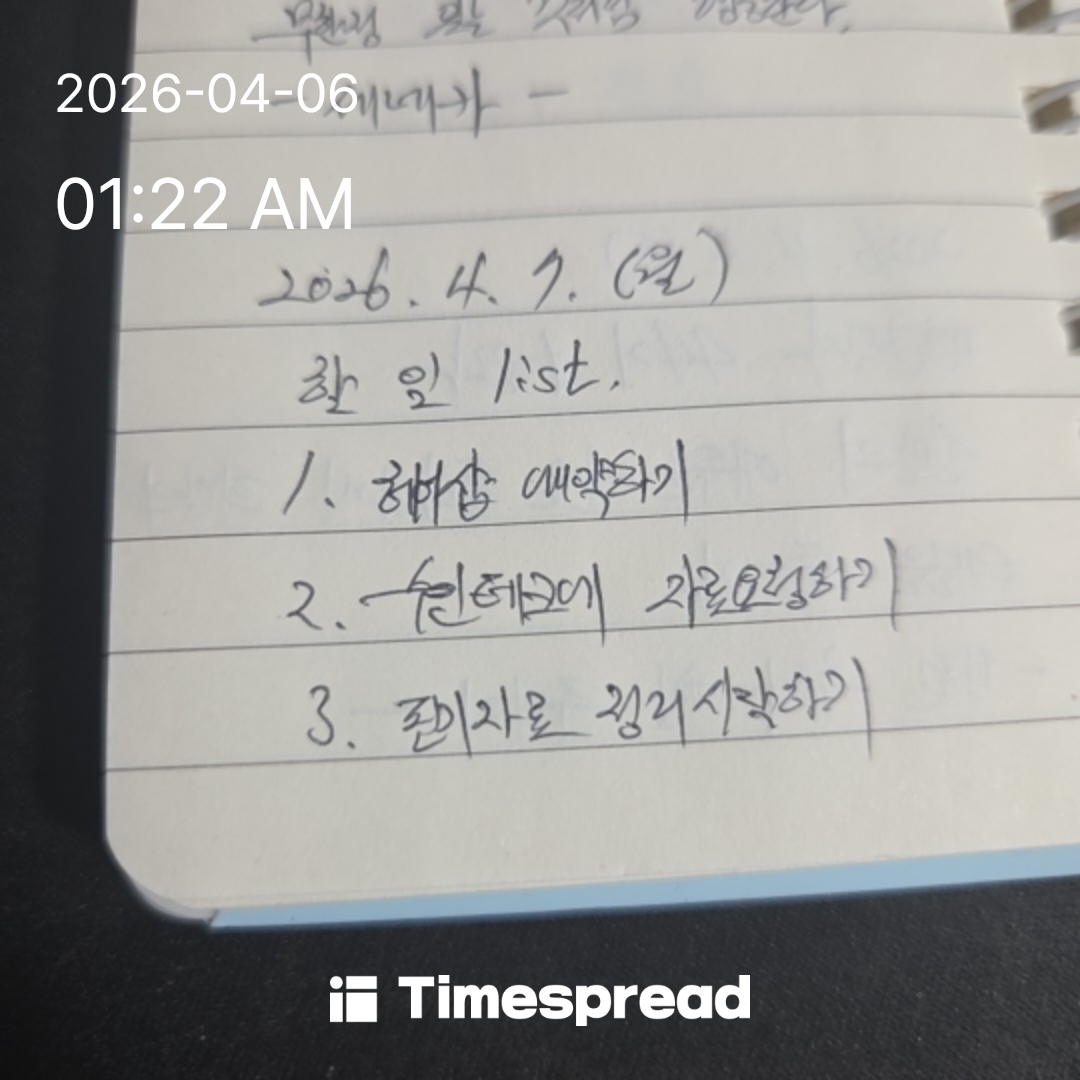 2026-04-06
01:22 AM
2026. 4. 7. (월)
할 일 list.
1. 헤어샵 예약하기
2. 자료요청하기
3. 자료 정리시작하기
Timespread